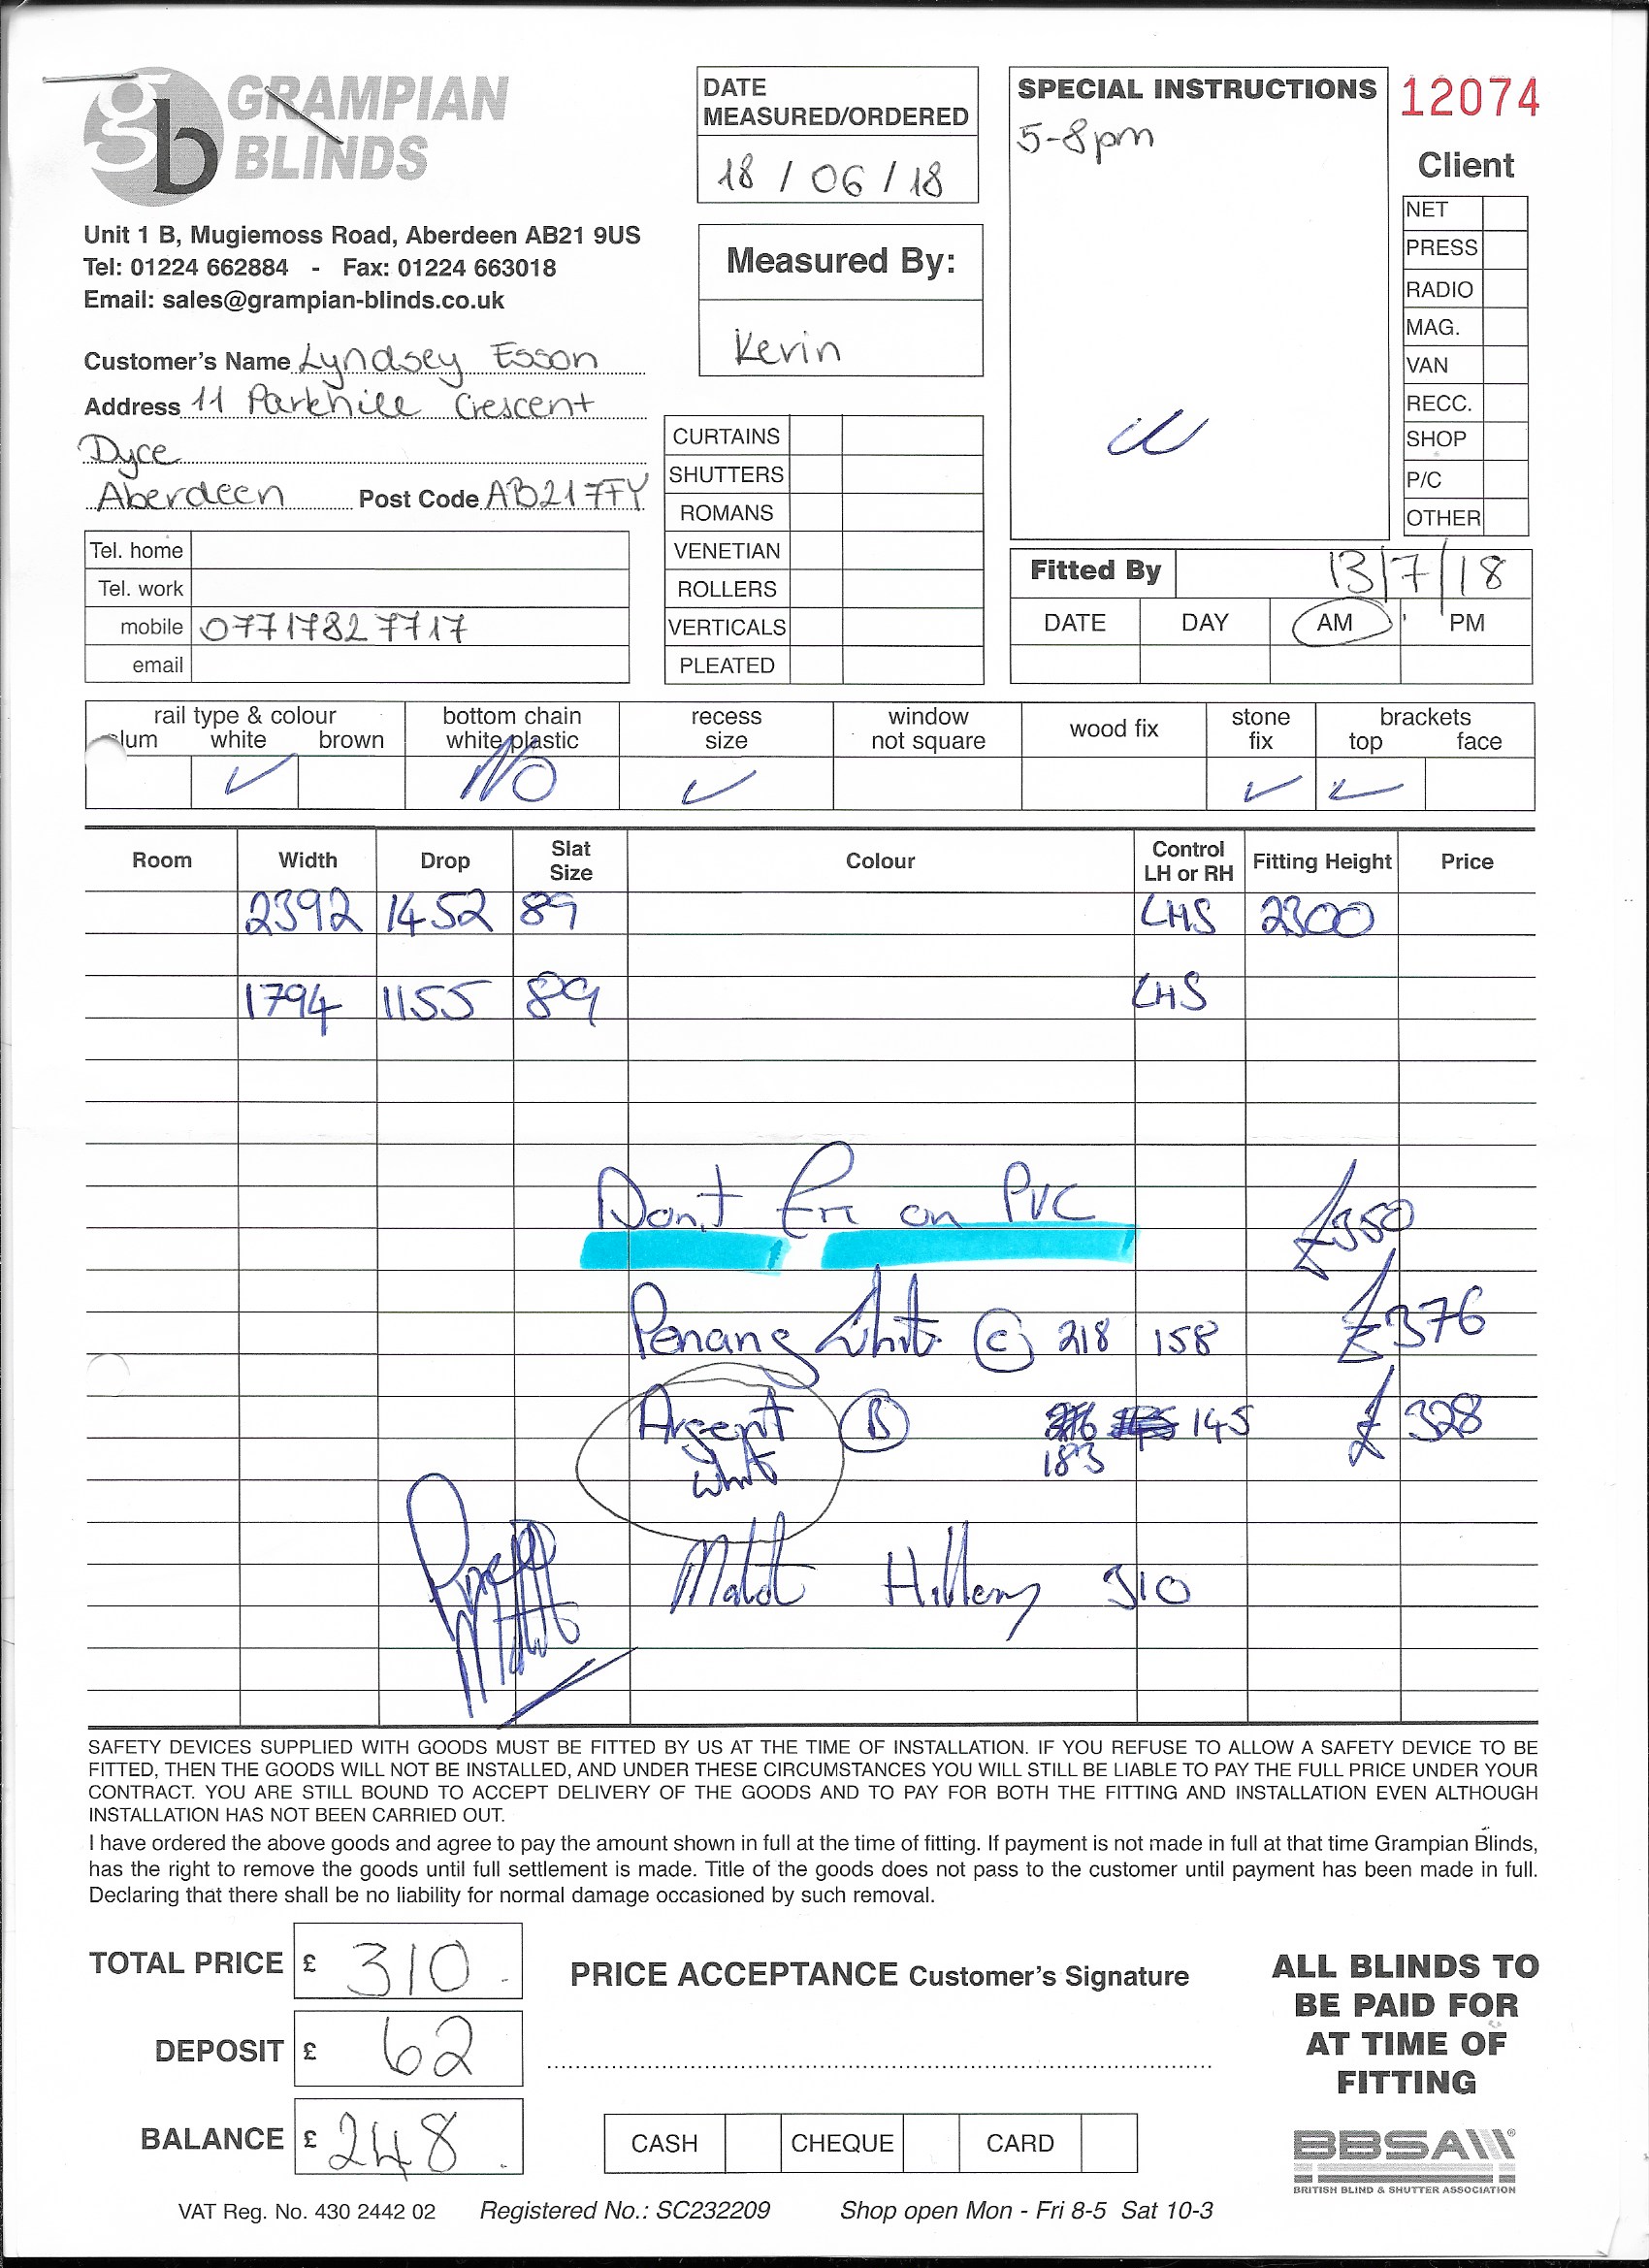 gb GRAMPIAN
BLINDS
Unit 1 B, Mugiemoss Road, Aberdeen AB21 9US
Tel: 01224 662884 - Fax: 01224 663018
Email: sales@grampian-blinds.co.uk
Customer's Name Lyndsey Esson
Address 11 Parkhill Crescent
Dyce
Aberdeen Post Code AB21 7FY
Tel. home
Tel. work
mobile 07717827717
email
DATE
MEASURED/ORDERED
18 / 06 / 18
Measured By:
Kevin
CURTAINS
SHUTTERS
ROMANS
VENETIAN
ROLLERS
VERTICALS
PLEATED
SPECIAL INSTRUCTIONS
5-8pm
12074
Client
NET
PRESS
RADIO
MAG.
VAN
RECC.
SHOP
P/C
OTHER
Fitted By 13/7/18
DATE DAY AM PM
rail type & colour bottom chain recess window wood fix stone brackets
alum white brown white plastic size not square fix top face
NO
Room Width Drop Slat Size Colour Control LH or RH Fitting Height Price
2392 1452 89 LHS 2300
1794 1155 89 LHS
Don't on PVC £350
Penang Whit C 218 158 £376
Argent B 145 £ 328
whit 183
Match Hillary 310
SAFETY DEVICES SUPPLIED WITH GOODS MUST BE FITTED BY US AT THE TIME OF INSTALLATION. IF YOU REFUSE TO ALLOW A SAFETY DEVICE TO BE
FITTED, THEN THE GOODS WILL NOT BE INSTALLED, AND UNDER THESE CIRCUMSTANCES YOU WILL STILL BE LIABLE TO PAY THE FULL PRICE UNDER YOUR
CONTRACT. YOU ARE STILL BOUND TO ACCEPT DELIVERY OF THE GOODS AND TO PAY FOR BOTH THE FITTING AND INSTALLATION EVEN ALTHOUGH
INSTALLATION HAS NOT BEEN CARRIED OUT.
I have ordered the above goods and agree to pay the amount shown in full at the time of fitting. If payment is not made in full at that time Grampian Blinds,
has the right to remove the goods until full settlement is made. Title of the goods does not pass to the customer until payment has been made in full.
Declaring that there shall be no liability for normal damage occasioned by such removal.
TOTAL PRICE £ 310
DEPOSIT £ 62
BALANCE £ 248
PRICE ACCEPTANCE Customer's Signature
CASH CHEQUE CARD
ALL BLINDS TO
BE PAID FOR
AT TIME OF
FITTING
BBSA
BRITISH BLIND & SHUTTER ASSOCIATION
VAT Reg. No. 430 2442 02 Registered No.: SC232209 Shop open Mon - Fri 8-5 Sat 10-3